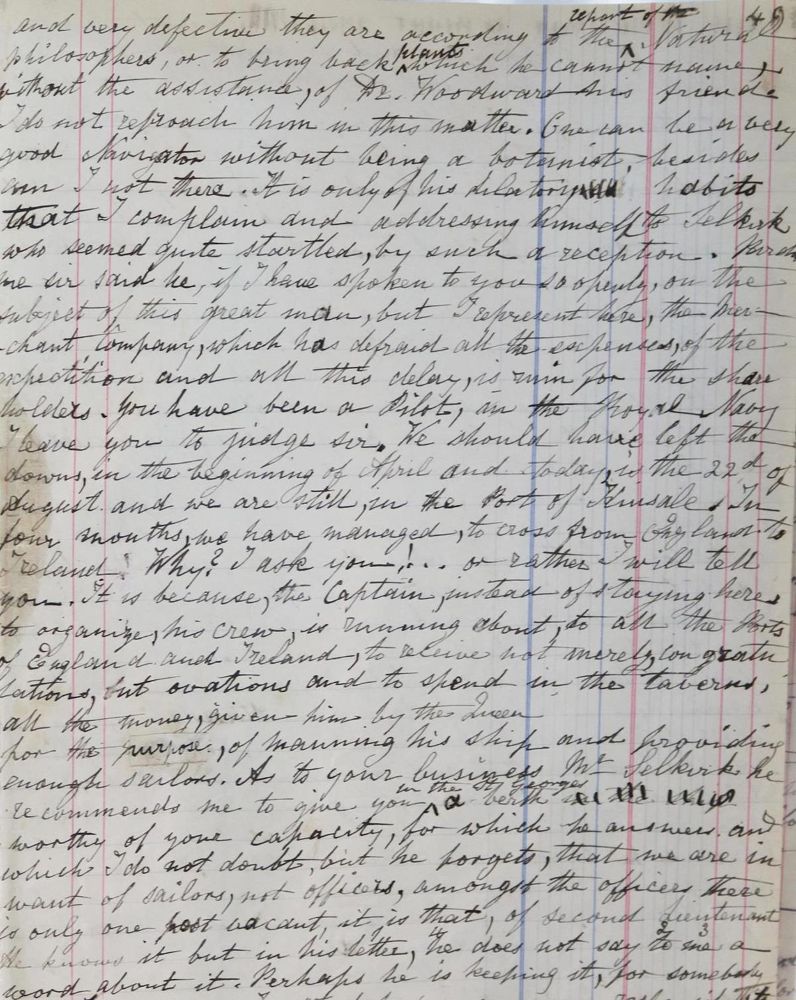 report of the 49
and very defective they are according to the Natural
philosophers, or to bring back plants which he cannot name,
without the assistance, of Dr. Woodward his friend
I do not reproach him in this matter. One can be a very
good Navigator without being a botanist, besides
am I not there. It is only of his dilatory habits
that I complain and addressing himself to Selkirk
who seemed quite startled, by such a reception. Pardon
me sir said he, if I have spoken to you so openly, on the
subject of this great man, but I represent here, the Mer-
-chant Company, which has defraid all the expenses, of the
expedition and all this delay, is ruin for the share
holders. You have been a Pilot, in the Royal Navy
I leave you to judge sir. We should have left the
downs, in the beginning of April and today, is the 22d of
August and we are still, in the Port of Kinsale. In
four months, we have managed, to cross from England to
Ireland! Why? I ask you!... or rather I will tell
you. It is because, the Captain, instead of staying here
to organize, his crew, is running about, to all the Ports
of England and Ireland, to receive not merely, congratu
lations, but ovations and to spend in the taverns,
all the money, given him by the Queen
for the purpose, of manning his ship and providing
enough sailors. As to your business Mr Selkirk he
in the St George
recommends me to give you a berth
worthy of your capacity, for which he answers and
which I do not doubt, but he forgets, that we are in
want of sailors, not officers, amongst the officers there
is only one post vacant, it is that, of second Lieutenant
He knows it but in his letter, he does not say to 2 me 3 a
word about it. Perhaps he is keeping it, for somebody